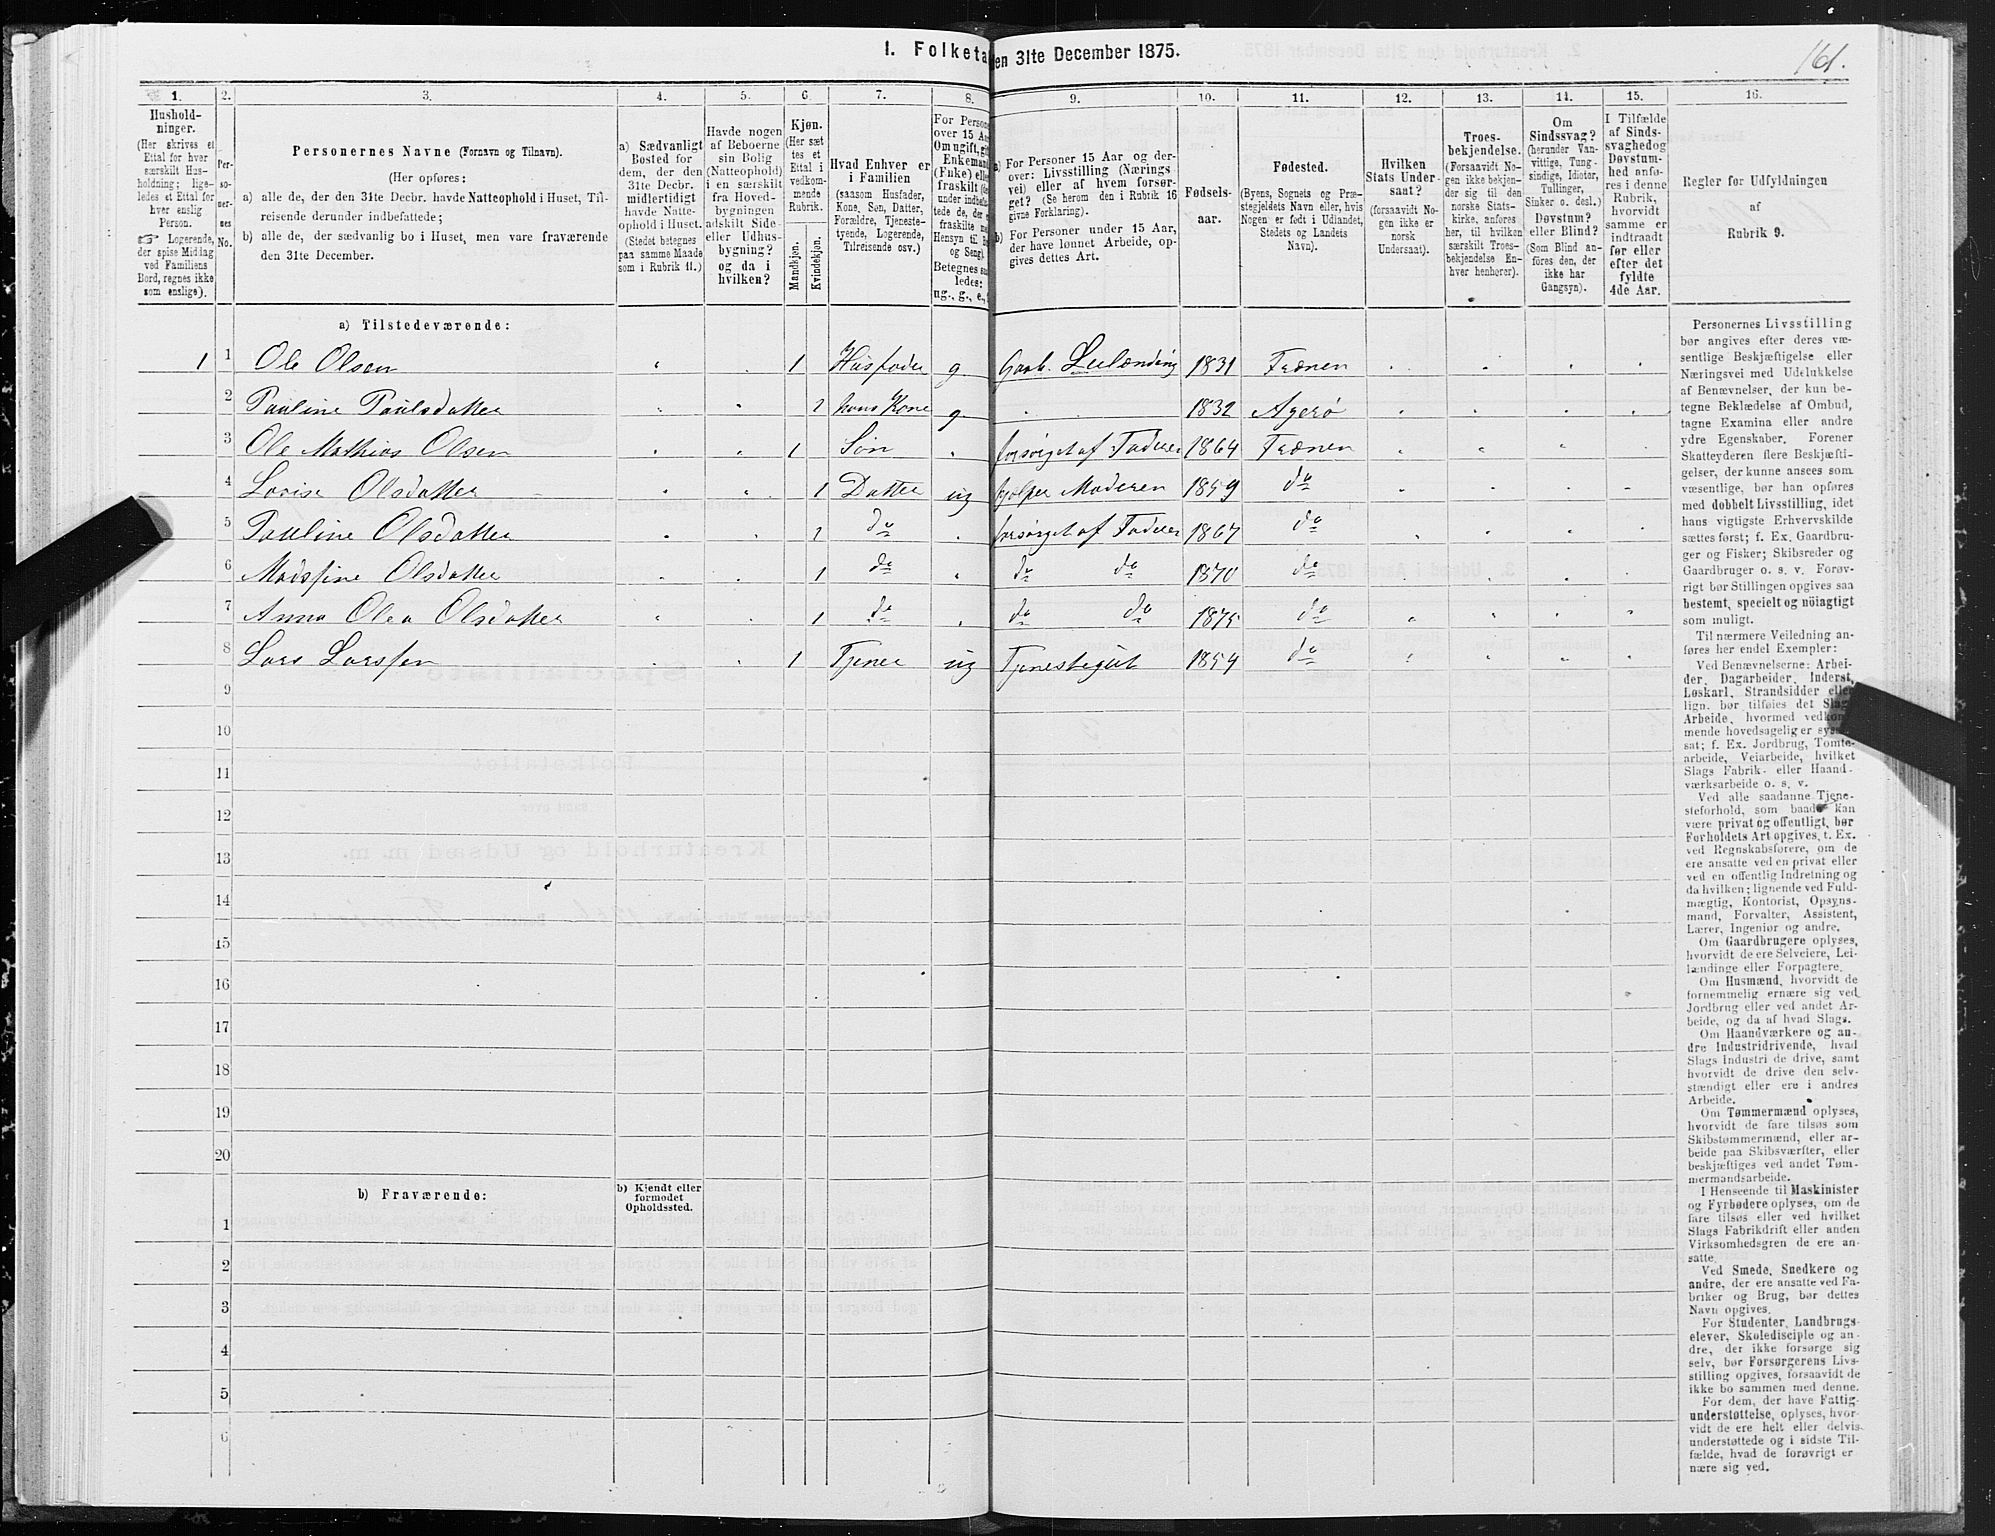 1. Folketa
en 31te December 1875.
161.
1. 2. 3. 4. 5. 6. 7. 8. 9. 10. 11. 12. 13. 14. 15. 16.
Hushold-
ninger.
(Her skrives et
Ettal for hver
særskilt Hus-
holdning; lige-
ledes et Ettal for
hver enslig
Person.
☞ Logerende,
der spise Middag
ved Familiens
Bord, regnes ikke
som enslige).
Per-
so-
ner-
nes
No.
Personernes Navne (Fornavn og Tilnavn).
(Her opføres:
a) alle de, der den 31te Decbr. havde Natteophold i Huset, Til-
reisende derunder indbefattede;
b) alle de, der sædvanlig bo i Huset, men vare fraværende
den 31te December.
a) Sædvanligt
Bosted for
dem, der den
31te Decbr.
midlertidigt
havde Natte-
ophold i Huset.
(Stedet betegnes
paa samme Maade
som i Rubrik 11.)
Havde nogen
af Beboerne
sin Bolig
(Natteophold)
i en særskilt
fra Hoved-
bygningen
adskilt Side-
eller Udhus-
bygning?
og da i
hvilken?
Kjøn.
(Her sæt
tes et
Ettal i
vedkom-
mende
Rubrik.
Mandkjøn.
Kvindekjøn.
Hvad Enhver er
i Familien
(saasom Husfader,
Kone, Søn, Datter,
Forældre, Tjeneste-
tyende, Logerende,
Tilreisende osv.)
For Persone
over 15 Aa
Om ugift, gif
Enkemand
(Enke) elle
fraskilt (de
under indbefa
tede de, der e
fraskilte me
Hensyn til Bo
og Seng).
Betegnes saa
ledes:
ug., g., e.,
a) For Personer 15 Aar og der-
over: Livsstilling (Nærings-
vei) eller af hvem forsør-
get? (Se herom den i Rubrik 16
givne Forklaring).
b) For Personer under 15 Aar,
der have lønnet Arbeide, op-
gives dettes Art.
Fødsels-
aar.
Fødested.
(Byens, Sognets og Præ-
stegjeldets Navn eller, hvis
Nogen er født i Udlandet,
Stedets og Landets
Navn).
Hvilken
Stats Under-
saat?
(forsaavidt No-
gen ikke er
norsk
Undersaat).
Troes-
bekjendelse.
(Forsaavidt No-
gen ikke bekjen-
der sig til den
norske Stats-
kirke, anføres
her, til hvilken
særskilt Troes-
bekjendelse En-
hver henhører).
Om
Sindssvag?
(herunder Van-
vittige, Tung-
sindige, Idioter,
Tullinger,
Sinker o. desl.)
Døvstum?
eller Blind?
(Som Blind an-
føres den, der
ikke har
Gangsyn).
I Tilfælde
af Sinds-
svaghed og
Døvstum-
hed anfø-
res i denne
Rubrik,
hvorvidt
samme er
indtraadt
før eller
efter det
fyldte
4de Aar.
Regler før Udfyldningen
af
Rubrik 9.
a) Tilstedeværende:
1 1 Ole Olsen 1 Husfader g Gaarb. Leilænding 1831 Trænen
2 Pauline Paulsdatter 1 hans Kone g 1832 Agerø
3 Ole Mathias Olsen 1 Søn forsørget af Faderen 1864 Trænen
4 Lovise Olsdatter 1 Datter ug hjelper Moderen 1859 do
5 Pauline Olsdatter 1 do forsørget af Faderen 1867 do
6 Madsfine Olsdatter 1 do do do 1870 do
7 Anna Olea Olsdatter 1 do do do 1875 do
8 Lars Larssen 1 Tjener ug Tjenestegut 1854 do
9
10
11
12
13
14
15
16
17
18
19
20
b) Fraværende:
b) Kjendt eller
formodet
Opholdssted.
1
2
3
4
5
6
Personernes Livsstilling
bør angives efter deres væ-
sentlige Beskjæftigelse eller
Næringsvei med Udelukkelse
af Benævnelser, der kun be-
tegne Beklædelse af Ombud,
tagne Examina eller andre
ydre Egenskaber. Forener
Skatteyderen flere Beskjæfti-
gelser, der kunne ansees som
væsentlige, bør han opføres
med dobbelt Livsstilling, idet
hans vigtigste Erhvervskilde
sættes først; f. Ex. Gaardbru-
ger og Fisker; Skibsreder og
Gaardbruger o. s. v. Forøv-
rigt bør Stillingen opgives saa
bestemt, specielt og nöiagtigt
som muligt.
Til nærmere Veiledning an-
føres her endel Exempler:
Ved Benævnelserne: Arbei-
der, Dagarbeider, Inderst,
Løskarl, Strandsidder eller
lign. bør tilføies det Slags
Arbeide, hvormed vedkom-
mende hovedsagelig er syssel-
sat; f. Ex. Jordbrug, Tomte-
arbeide, Veiarbeide, hvilket
Slags Fabrik- eller Haand-
værksarbeide o. s. v.
Ved alle saadanne Tjene-
steforhold, som baade kan
være privat og offentligt, bør
Forholdets Art opgives, t. Ex.
ved Regnskabsførere, om de
ere ansatte ved en privat eller
ved en offentlig Indretning og
da hvilken; lignende ved Fuld-
mægtig, Kontorist, Opsyns-
mand, Forvalter, Assistent,
Lærer, Ingeniør og andre.
Om Gaardbrugere oplyses,
hvorvidt de ere Selveiere, Lei-
lændinge eller Forpagtere.
Om Husmænd, hvorvidt de
fornemmelig ernære sig ved
Jordbrug eller ved andet Ar-
beide, og da af hvad Slags.
Om Haandværkere og an-
dre Industridrivende, hvad
Slags Industri de drive, samt
hvorvidt de drive den selv-
stændigt eller ere i andres
Arbeide.
Om Tømmermænd oplyses,
hvorvidt de fare tilsøs som
Skibstømmermænd, eller ar-
beide paa Skibsværfter, eller
beskjæftiges ved andet Tøm-
mermandsarbeide.
I Henseende til Maskinister
og Fyrbødere oplyses, om de
fare tilsøs eller ved hvilket
Slags Fabrikdrift eller anden
Virksomhedsgren de ere an-
satte.
Ved Smede, Snedkere og
andre, der ere ansatte ved Fa-
briker og Brug, bør dettes
Navn opgives.
For Studenter, Landbrugs-
elever, Skoledisciple og an-
dre, der ikke forsørge sig
selv, bør Forsørgerens Livs-
stilling opgives, forsaavidt de
ikke bo sammen med denne.
For dem, der have Fattig-
understøttelse, oplyses, hvor-
vidt de ere helt eller delvis
understøttede og i sidste Til-
fælde, hvad de forøvrigt er
nære sig ved.